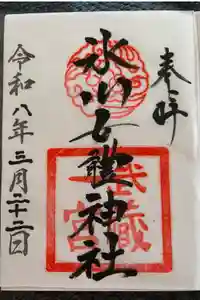 奉拝
氷川女體神社
武藏
一宮
令和八年三月二十二日